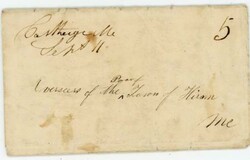 Sept 11
5
Overseers of the Poor Town of Hiram
Me